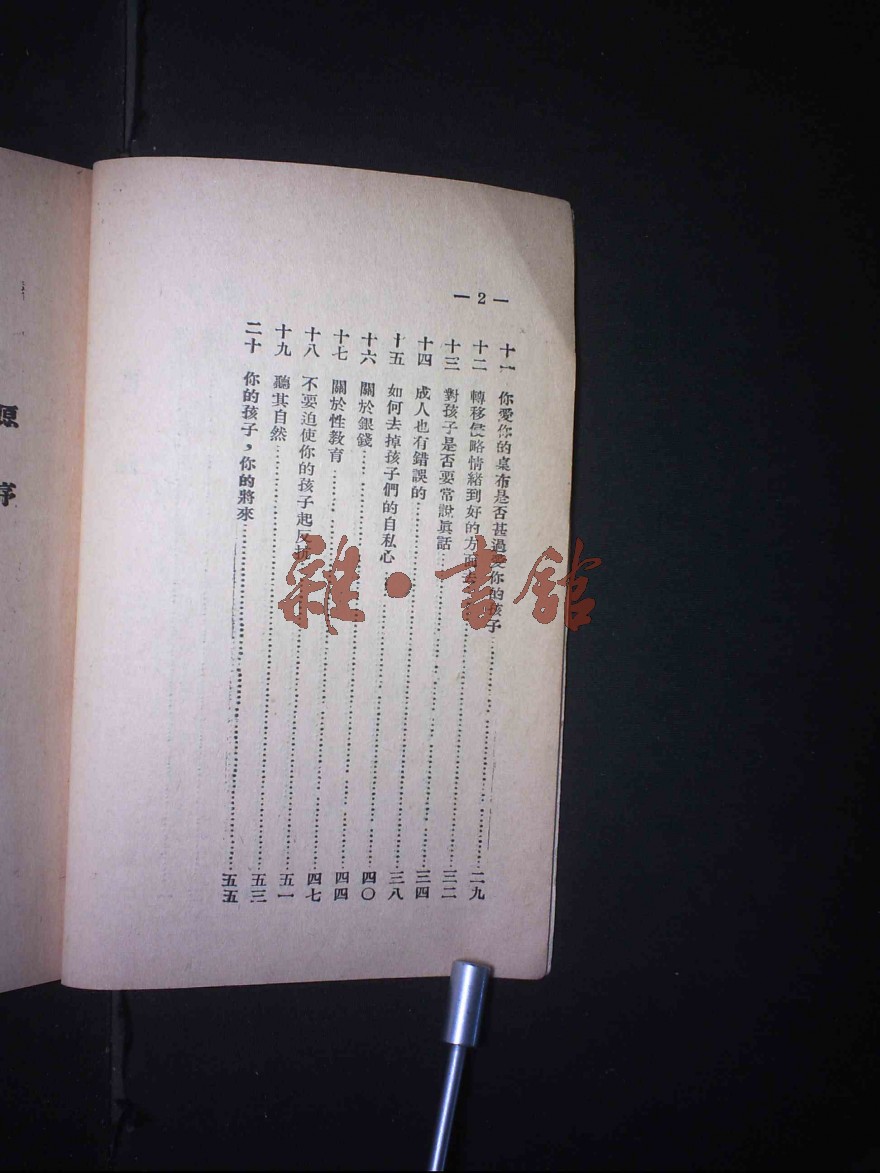 — 2 —
十一 你愛你的桌布是否甚過愛你的孩子……二九
十二 轉移侵略情緒到好的方面去……三二
十三 對孩子是否要常說眞話……三四
十四 成人也有錯誤的……三八
十五 如何去掉孩子們的自私心……四〇
十六 關於銀錢……四四
十七 關於性教育……四七
十八 不要迫使你的孩子起反抗……五一
十九 聽其自然……五三
二十 你的孩子，你的將來……五五
原序
雜·書館